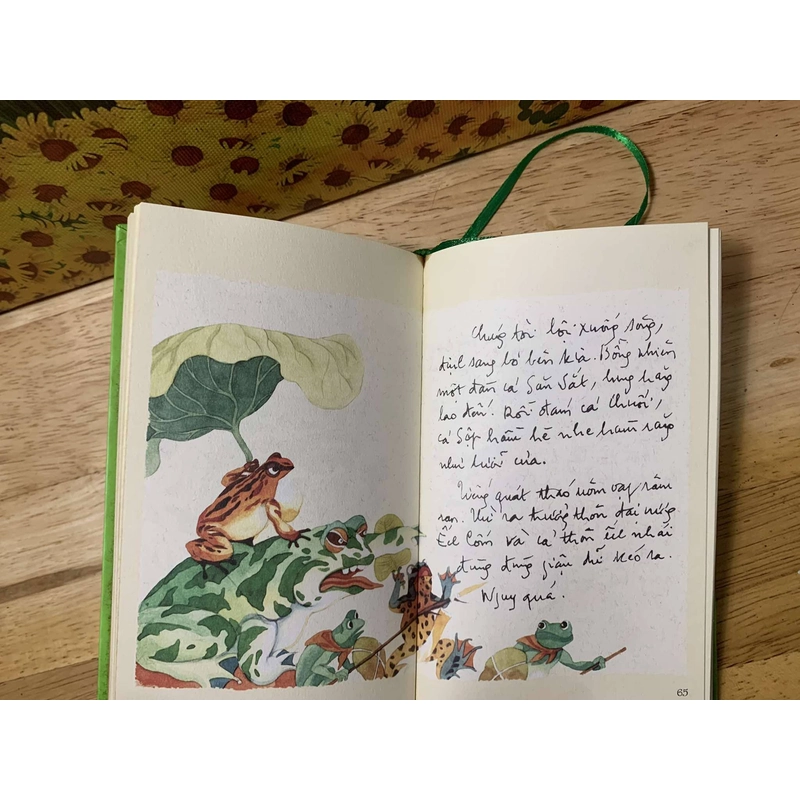 Chúng tôi lội xuống sông,
định sang bờ bên kia. Bỗng nhiên
một đàn cá Săn Sắt, hung hăng
lao đến. Rồi đám cá Chuối,
cá Sộp hầm hè nhe hàm răng
như lưỡi cưa.
Tiếng quát tháo uôm oạp rầm
ran. Thì ra trưởng thôn đại vương
Ếch Cốm và cả thôn ếch nhái
đùng đùng giận dữ kéo ra.
Nguy quá.
65